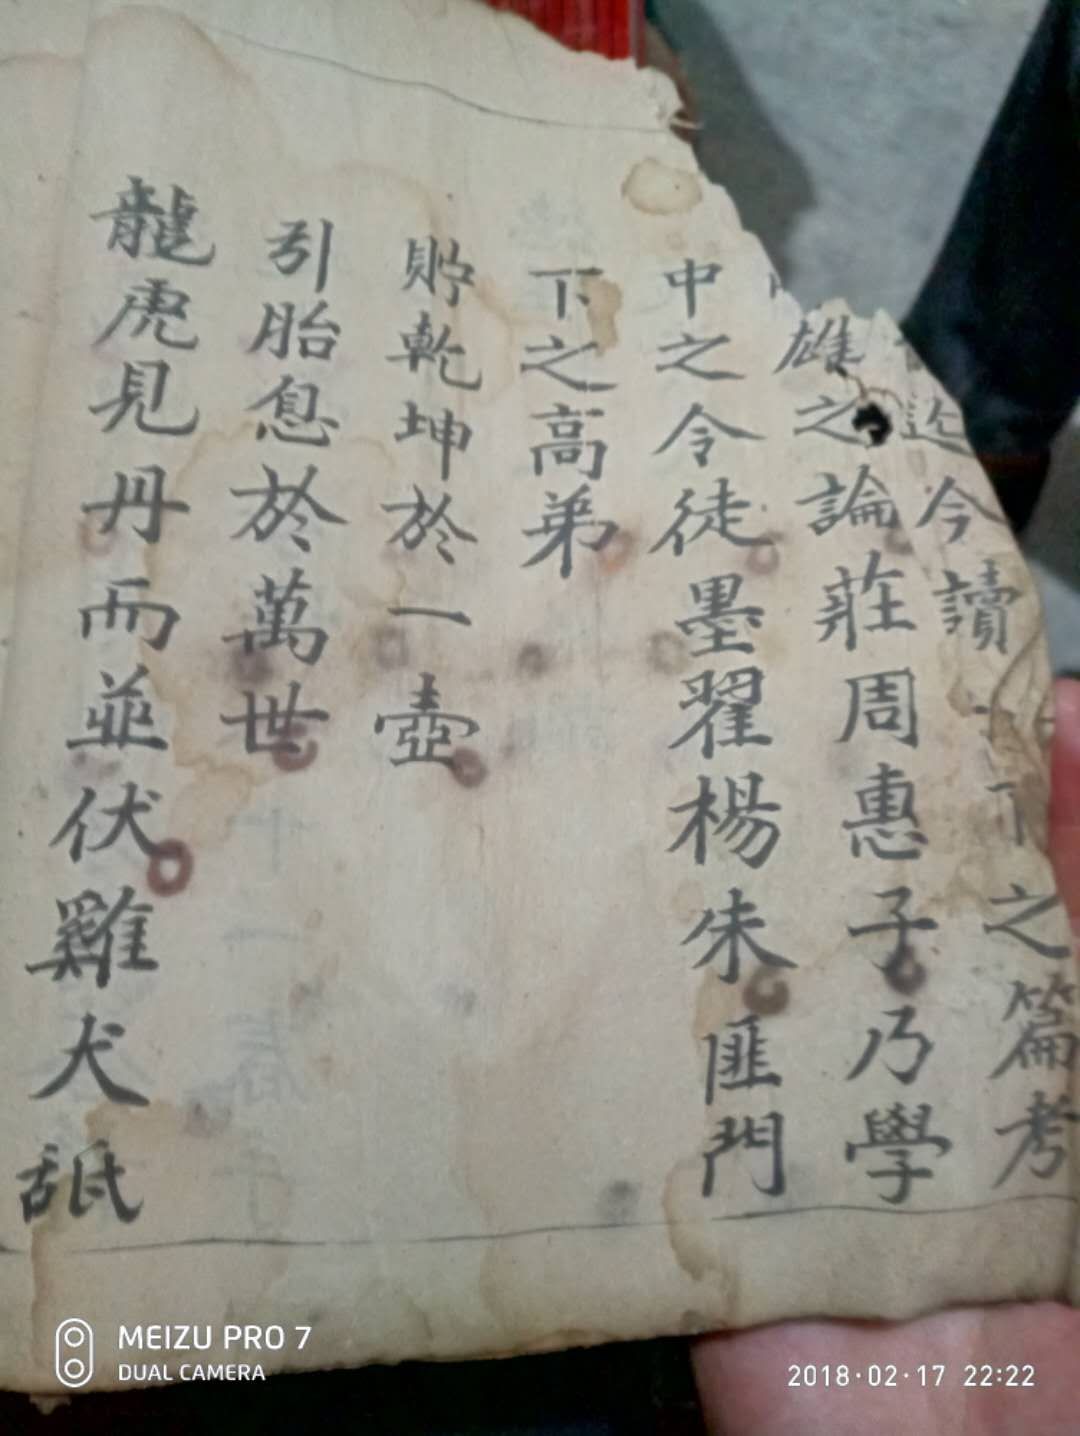 迄今讀下之篇考
雄之論莊周惠子乃學
中之令徒墨翟楊朱匪門
下之高弟
貯乾坤於一壺
引胎息於萬世
龍虎見丹而並伏雞犬舐
MEIZU PRO 7
DUAL CAMERA
2018·02·17 22:22